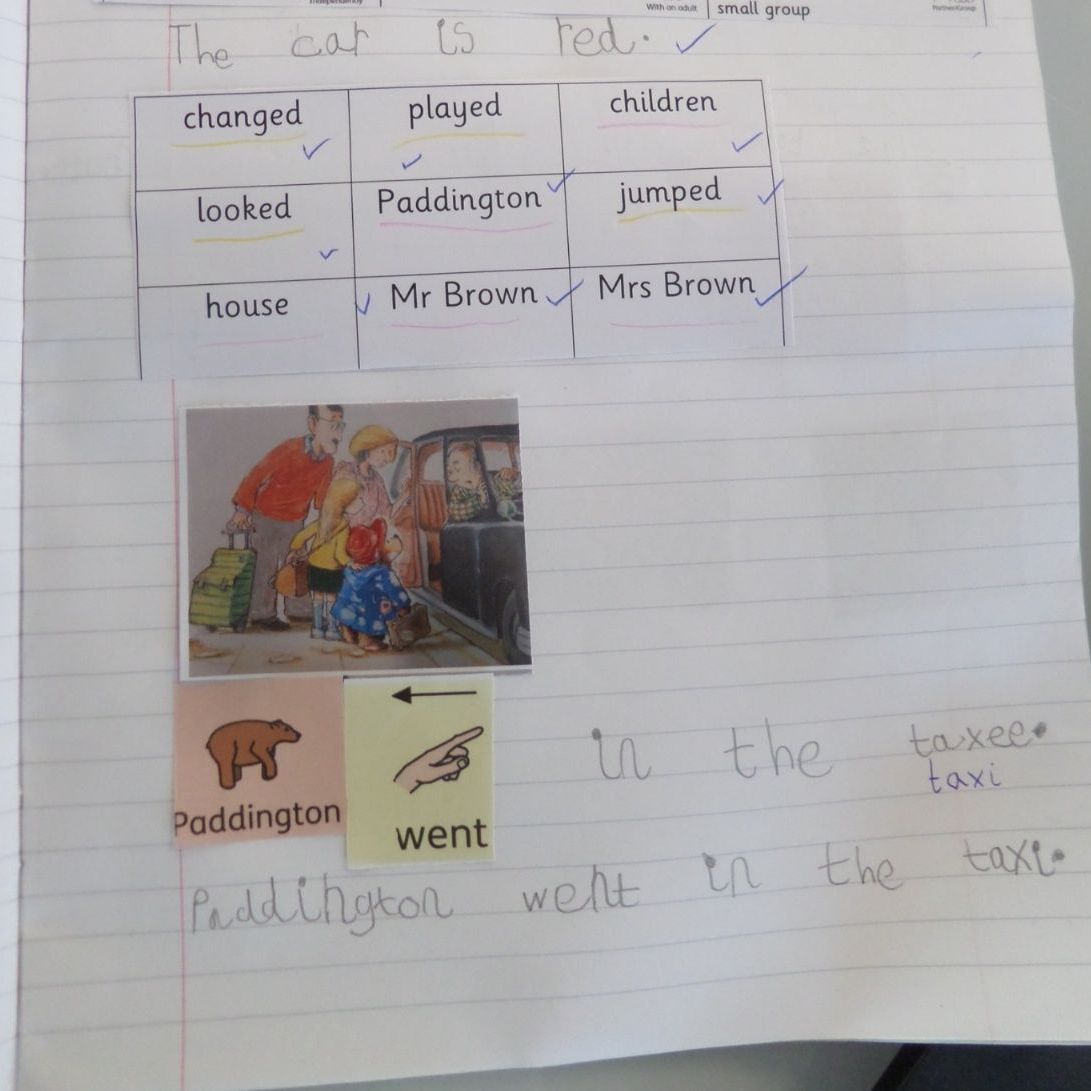 With an adult small group
The car is red.
changed played children
looked Paddington jumped
house Mr Brown Mrs Brown
in the taxee.
taxi
Paddington went
Paddington went in the taxi.